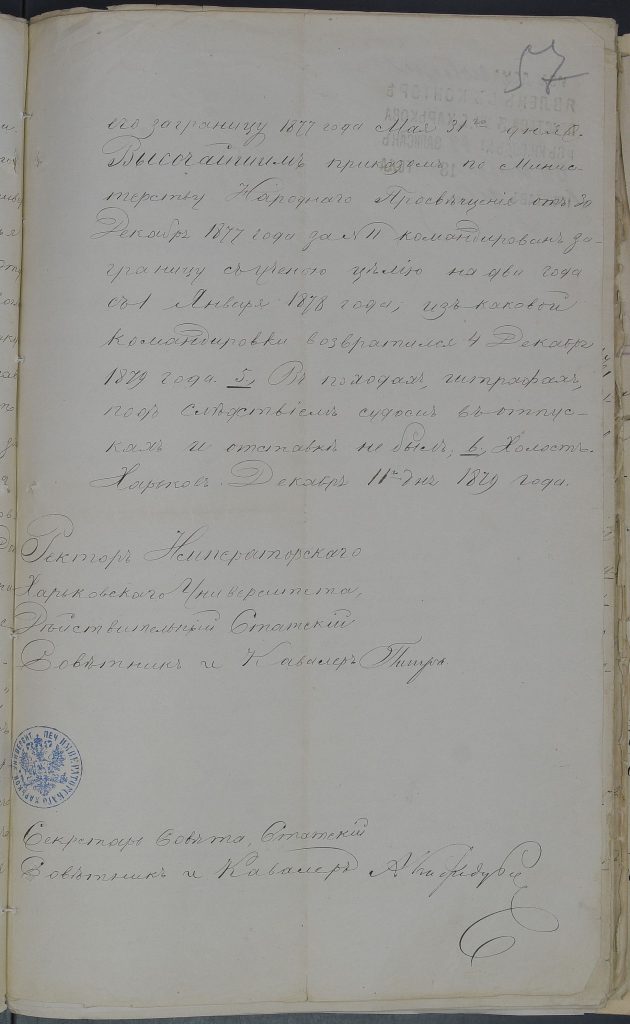 57
его заграницу 1877 года Мая 31го дня.
Высочайшимъ приказомъ по Минис-
терству Народнаго Просвѣщенія отъ 30
Декабря 1877 года за № 11 командированъ за-
границу съ ученою цѣлію на два года
съ 1 Января 1878 года, изъ каковой
командировки возвратился 4 Декабря
1879 года. 5, Въ походахъ, штрафахъ,
подъ слѣдствіемъ и судомъ въ отпус-
кахъ и отставкѣ не былъ, 6, Холостъ.
Харьковъ. Декабря 11 дня 1879 года.
Ректоръ Императорскаго
Харьковскаго Университета,
Дѣйствительный Статскій
Совѣтникъ и Кавалеръ Питра
Секретарь Совѣта, Статскій
Совѣтникъ и Кавалеръ А